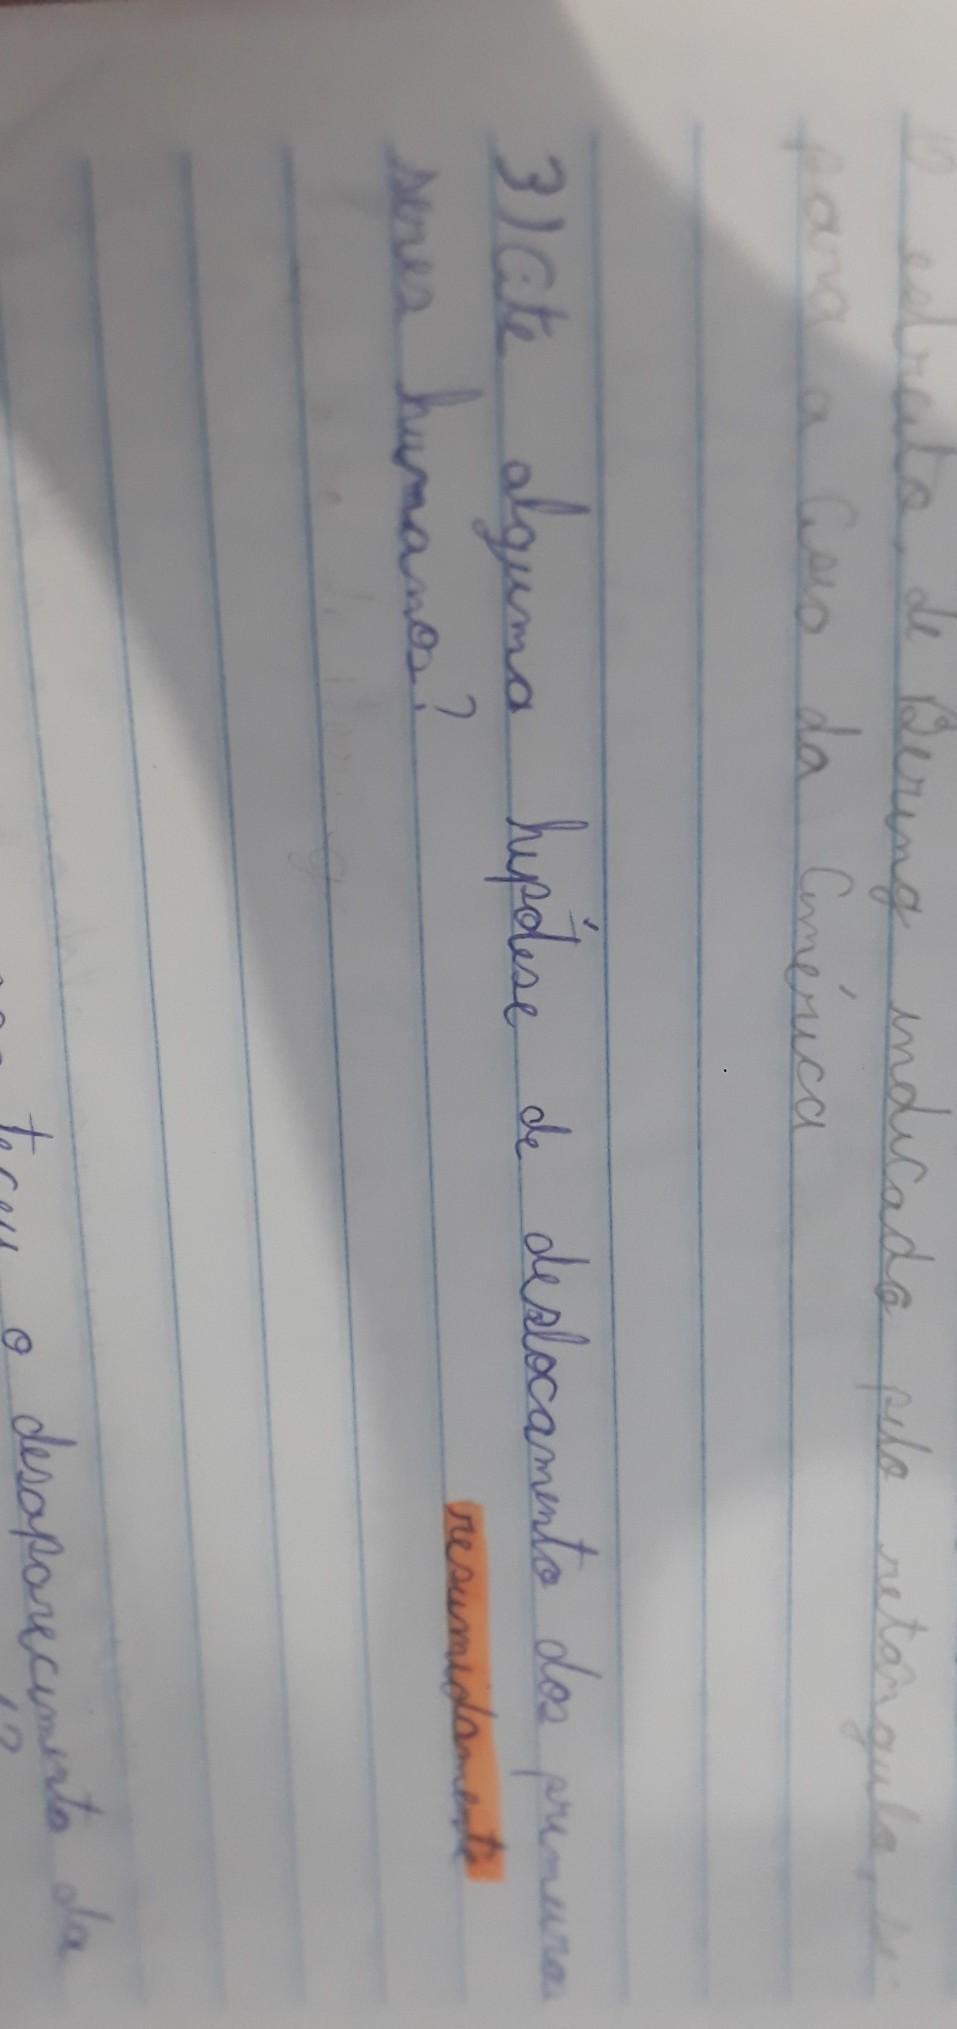 O estreito de Bering indicado pelo retângulo,
para a Ásia da América
3) Cite alguma hipótese de deslocamento dos primeiros
seres humanos?
resumidamente
o desaparecimento da